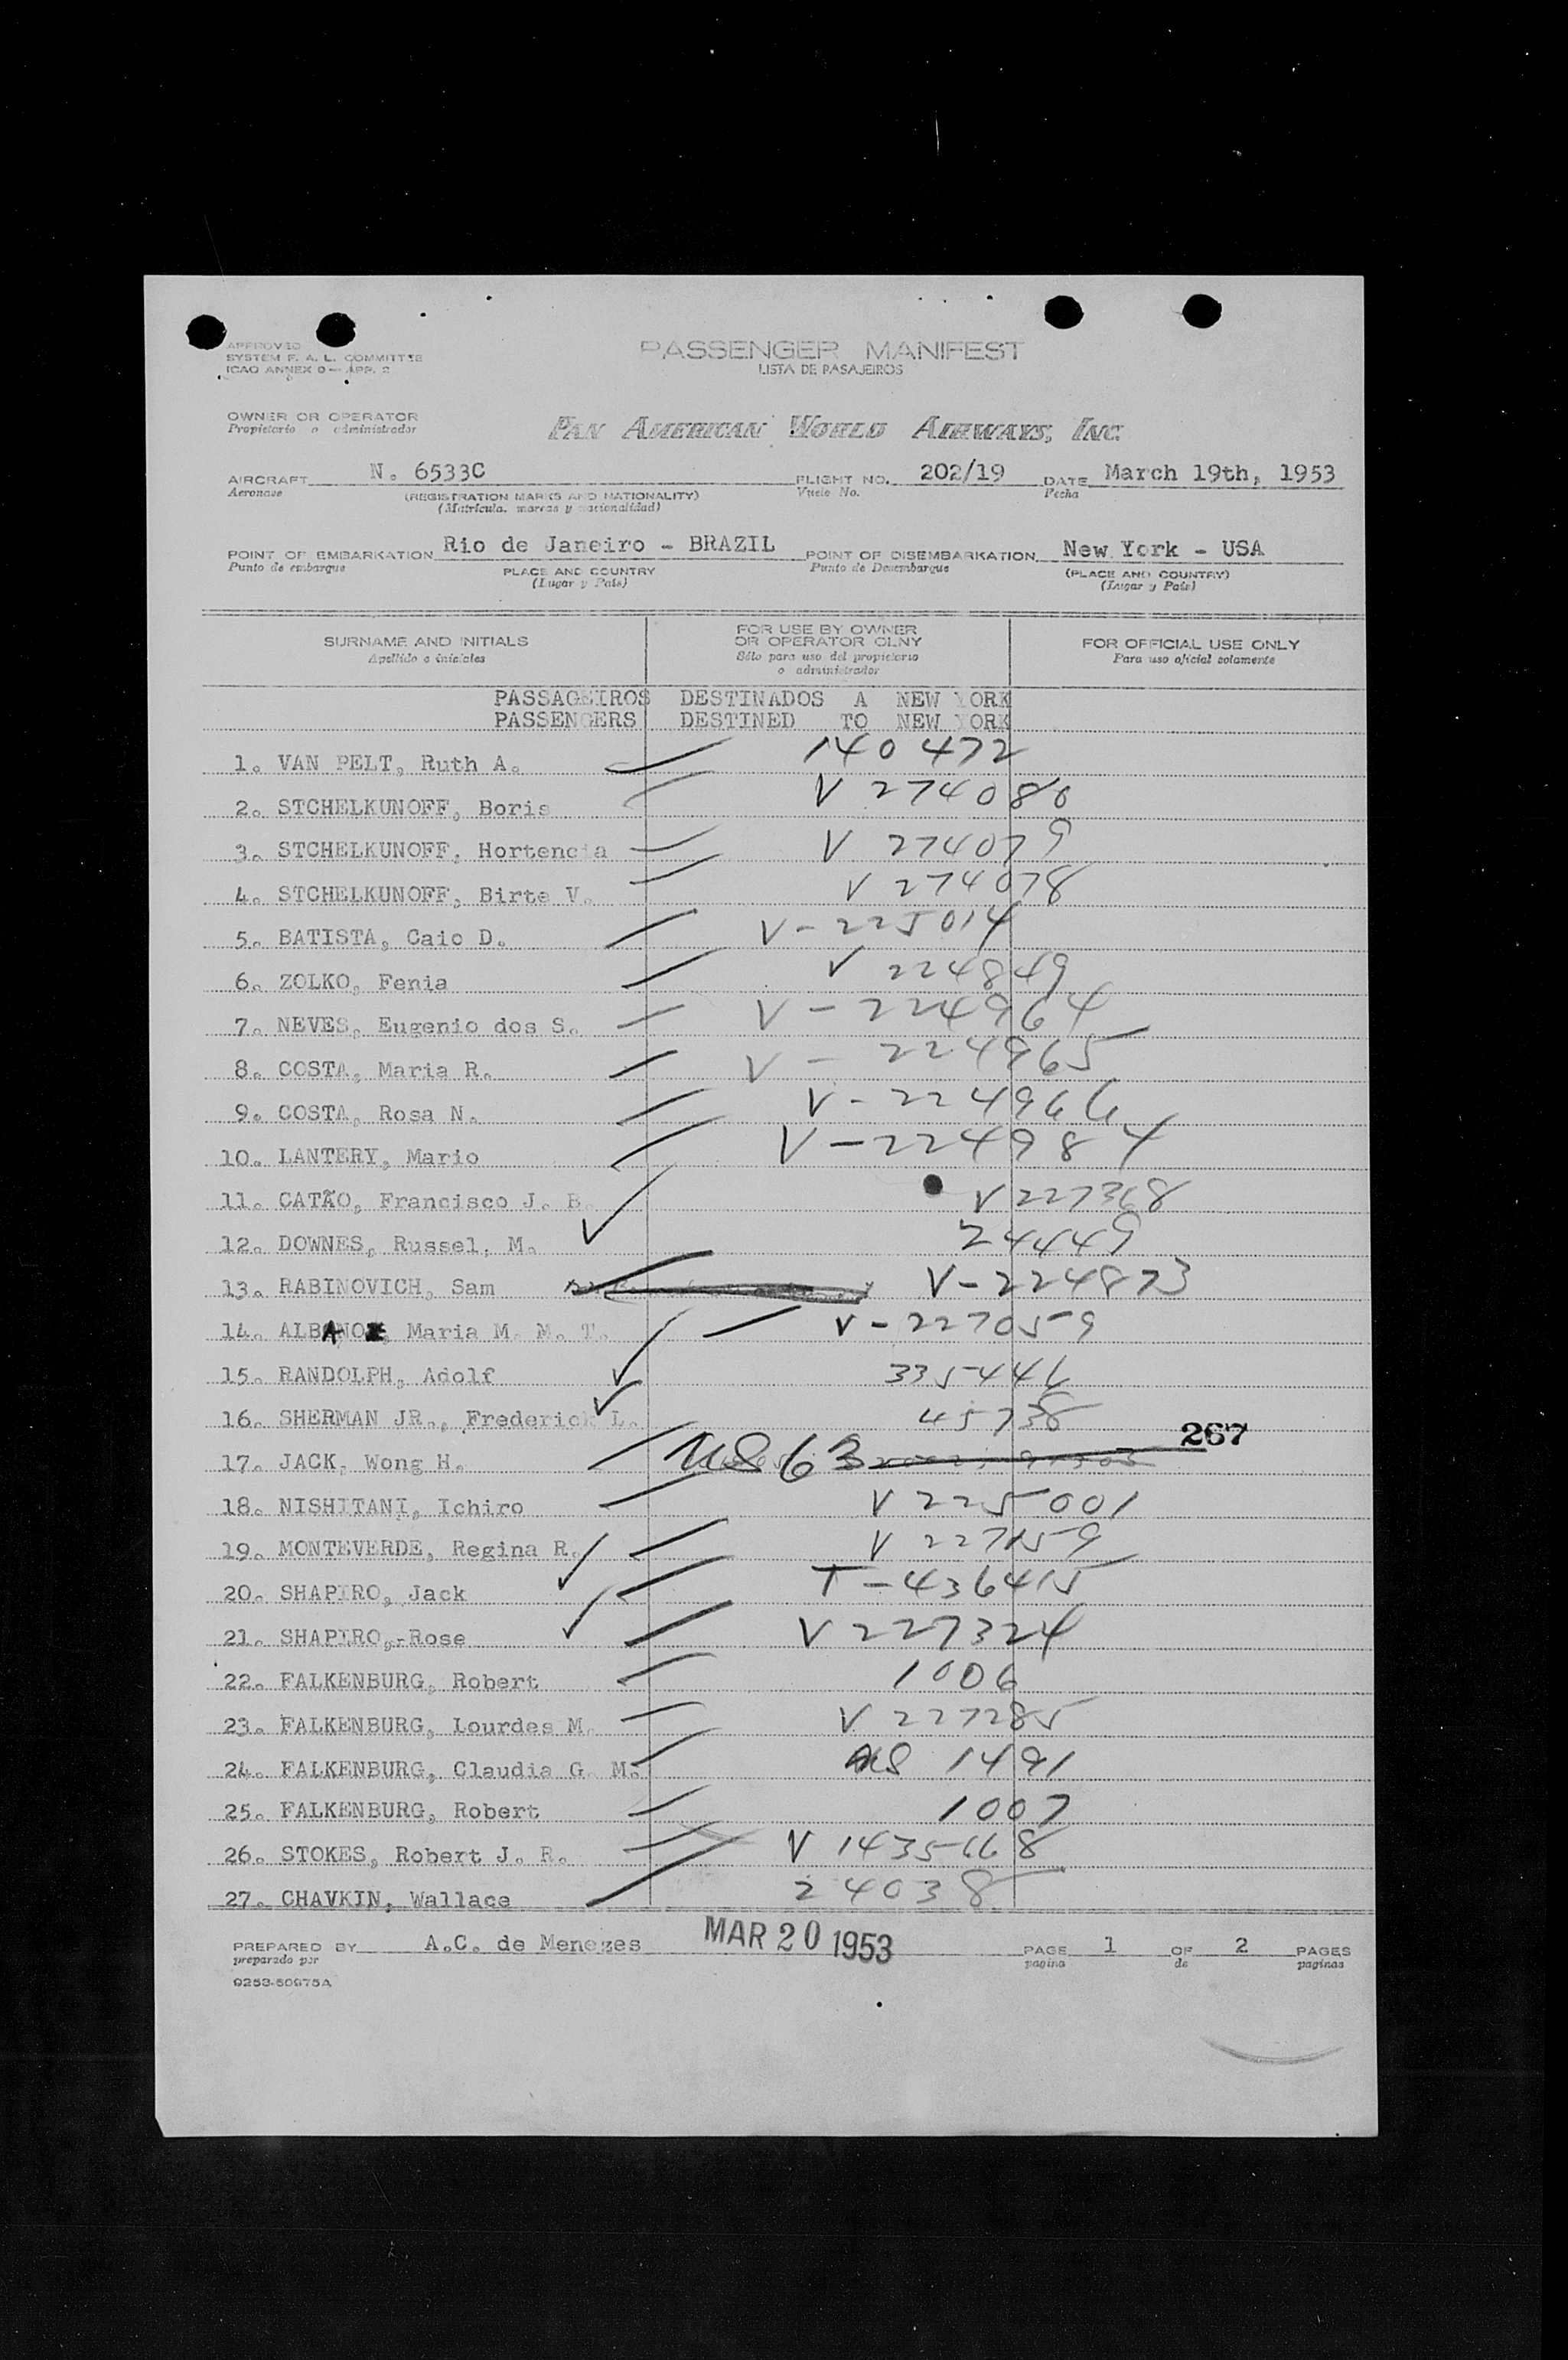 APPROVED
SYSTEM F. A. L. COMMITTEE
ICAO ANNEX 9 — APP. 2
PASSENGER MANIFEST
LISTA DE PASAJEIROS
OWNER OR OPERATOR
Propietario o administrador
PAN AMERICAN WORLD AIRWAYS, INC.
AIRCRAFT N. 6533C FLIGHT NO. 202/19 DATE March 19th, 1953
Aeronave (REGISTRATION MARKS AND NATIONALITY) Vuelo No. Fecha
(Matrícula, marcas y nacionalidad)
POINT OF EMBARKATION Rio de Janeiro - BRAZIL POINT OF DISEMBARKATION New York - USA
Punto de embarque PLACE AND COUNTRY Punto de Desembarque (PLACE AND COUNTRY)
(Lugar y País) (Lugar y País)
SURNAME AND INITIALS FOR USE BY OWNER OR OPERATOR OLNY FOR OFFICIAL USE ONLY
Apellido e iniciales Sólo para uso del propietario o administrador Para uso oficial solamente
PASSAGEIROS DESTINADOS A NEW YORK
PASSENGERS DESTINED TO NEW YORK
1. VAN PELT, Ruth A. 140472
2. STCHELKUNOFF, Boris V 274080
3. STCHELKUNOFF, Hortencia V 274079
4. STCHELKUNOFF, Birte V. V 274078
5. BATISTA, Caio D. V-225014
6. ZOLKO, Fenia V 224849
7. NEVES, Eugenio dos S. V-224964
8. COSTA, Maria R. V-224965
9. COSTA, Rosa N. V-224966
10. LANTERY, Mario V-224984
11. CATÃO, Francisco J. B. V 227318
12. DOWNES, Russel, M. 24449
13. RABINOVICH, Sam V-224873
14. ALBANO, Maria M. M. T. V-227059
15. RANDOLPH, Adolf 335446
16. SHERMAN JR., Frederick L. 45738
267
17. JACK, Wong H. US 63
18. NISHITANI, Ichiro V 225001
19. MONTEVERDE, Regina R. V 227159
20. SHAPIRO, Jack T-436415
21. SHAPIRO,-Rose V 227324
22. FALKENBURG, Robert 1006
23. FALKENBURG, Lourdes M. V 227285
24. FALKENBURG, Claudia G. M. US 1491
25. FALKENBURG, Robert 1007
26. STOKES, Robert J. R. V 1435668
27. CHAVKIN, Wallace 24038
PREPARED BY A.C. de Menezes MAR 20 1953 PAGE 1 OF 2 PAGES
preparado por pagina de paginas
9253-50975A